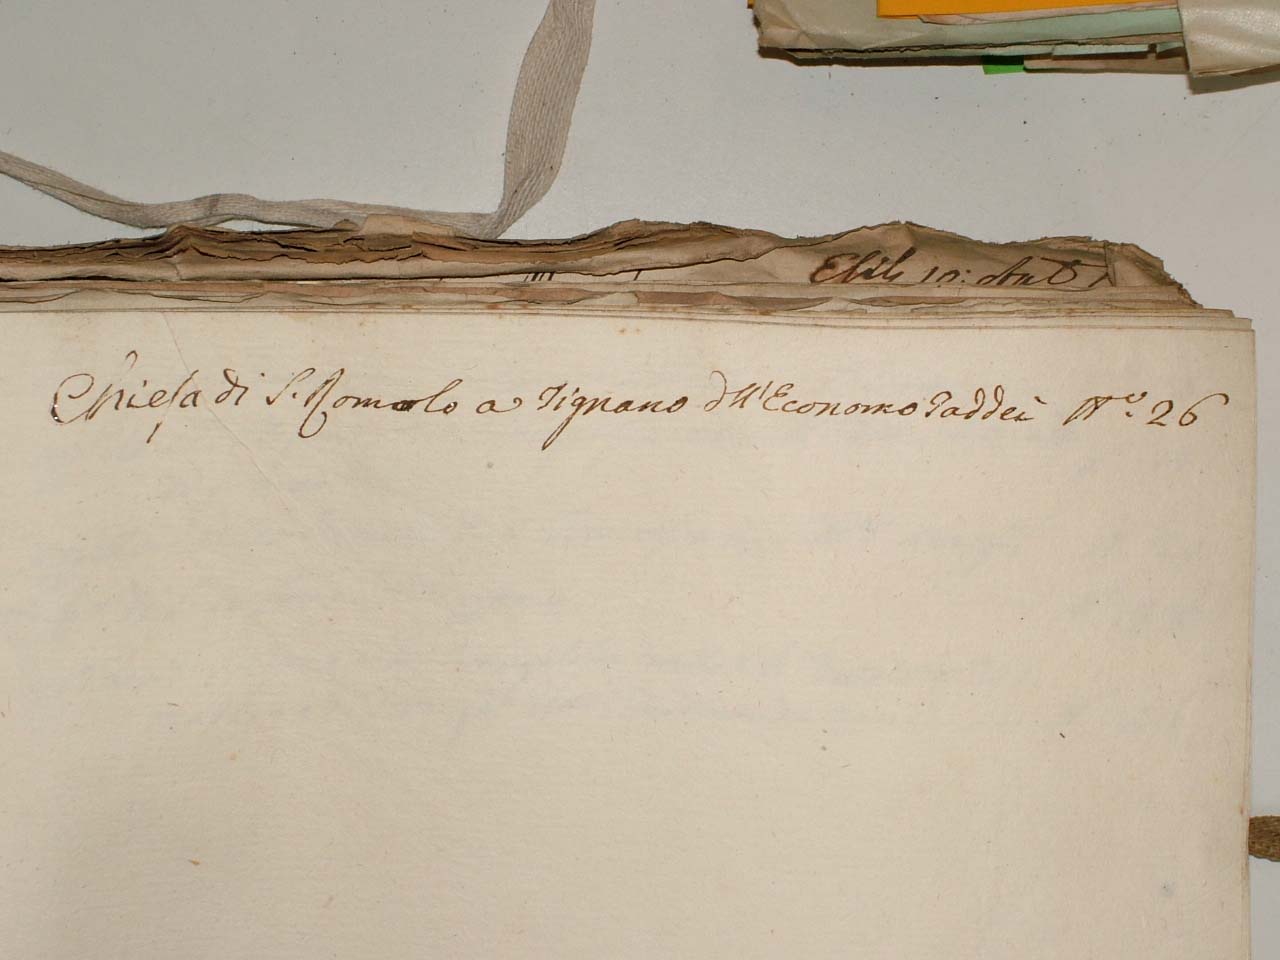 Chiesa di S. Romolo a Tignano dell'Economo Taddei N.º 26